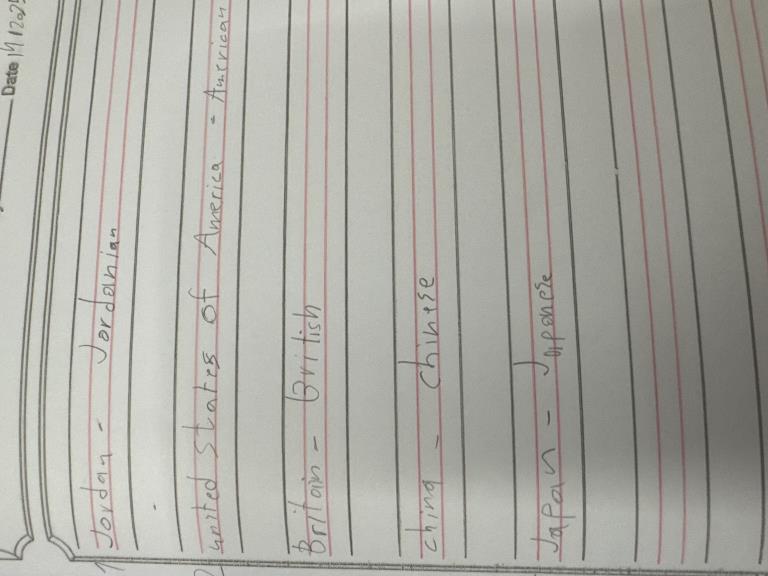 Date 19/12025
Jordan - Jordanian
united States of America - American
Britain - British
china - chinese
Japan - Japanese